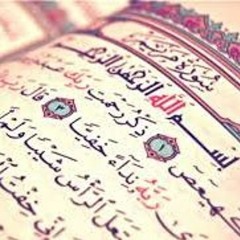 سُورَةُ مَرْيَمَ
بِسْمِ اللَّهِ الرَّحْمَٰنِ الرَّحِيمِ
كهيعص ١ ذِكْرُ رَحْمَتِ رَبِّكَ
رَبَّهُ نِدَاءً خَفِيًّا ٣ قَالَ
الرَّأْسُ شَيْبًا وَلَمْ
خِفْتُ